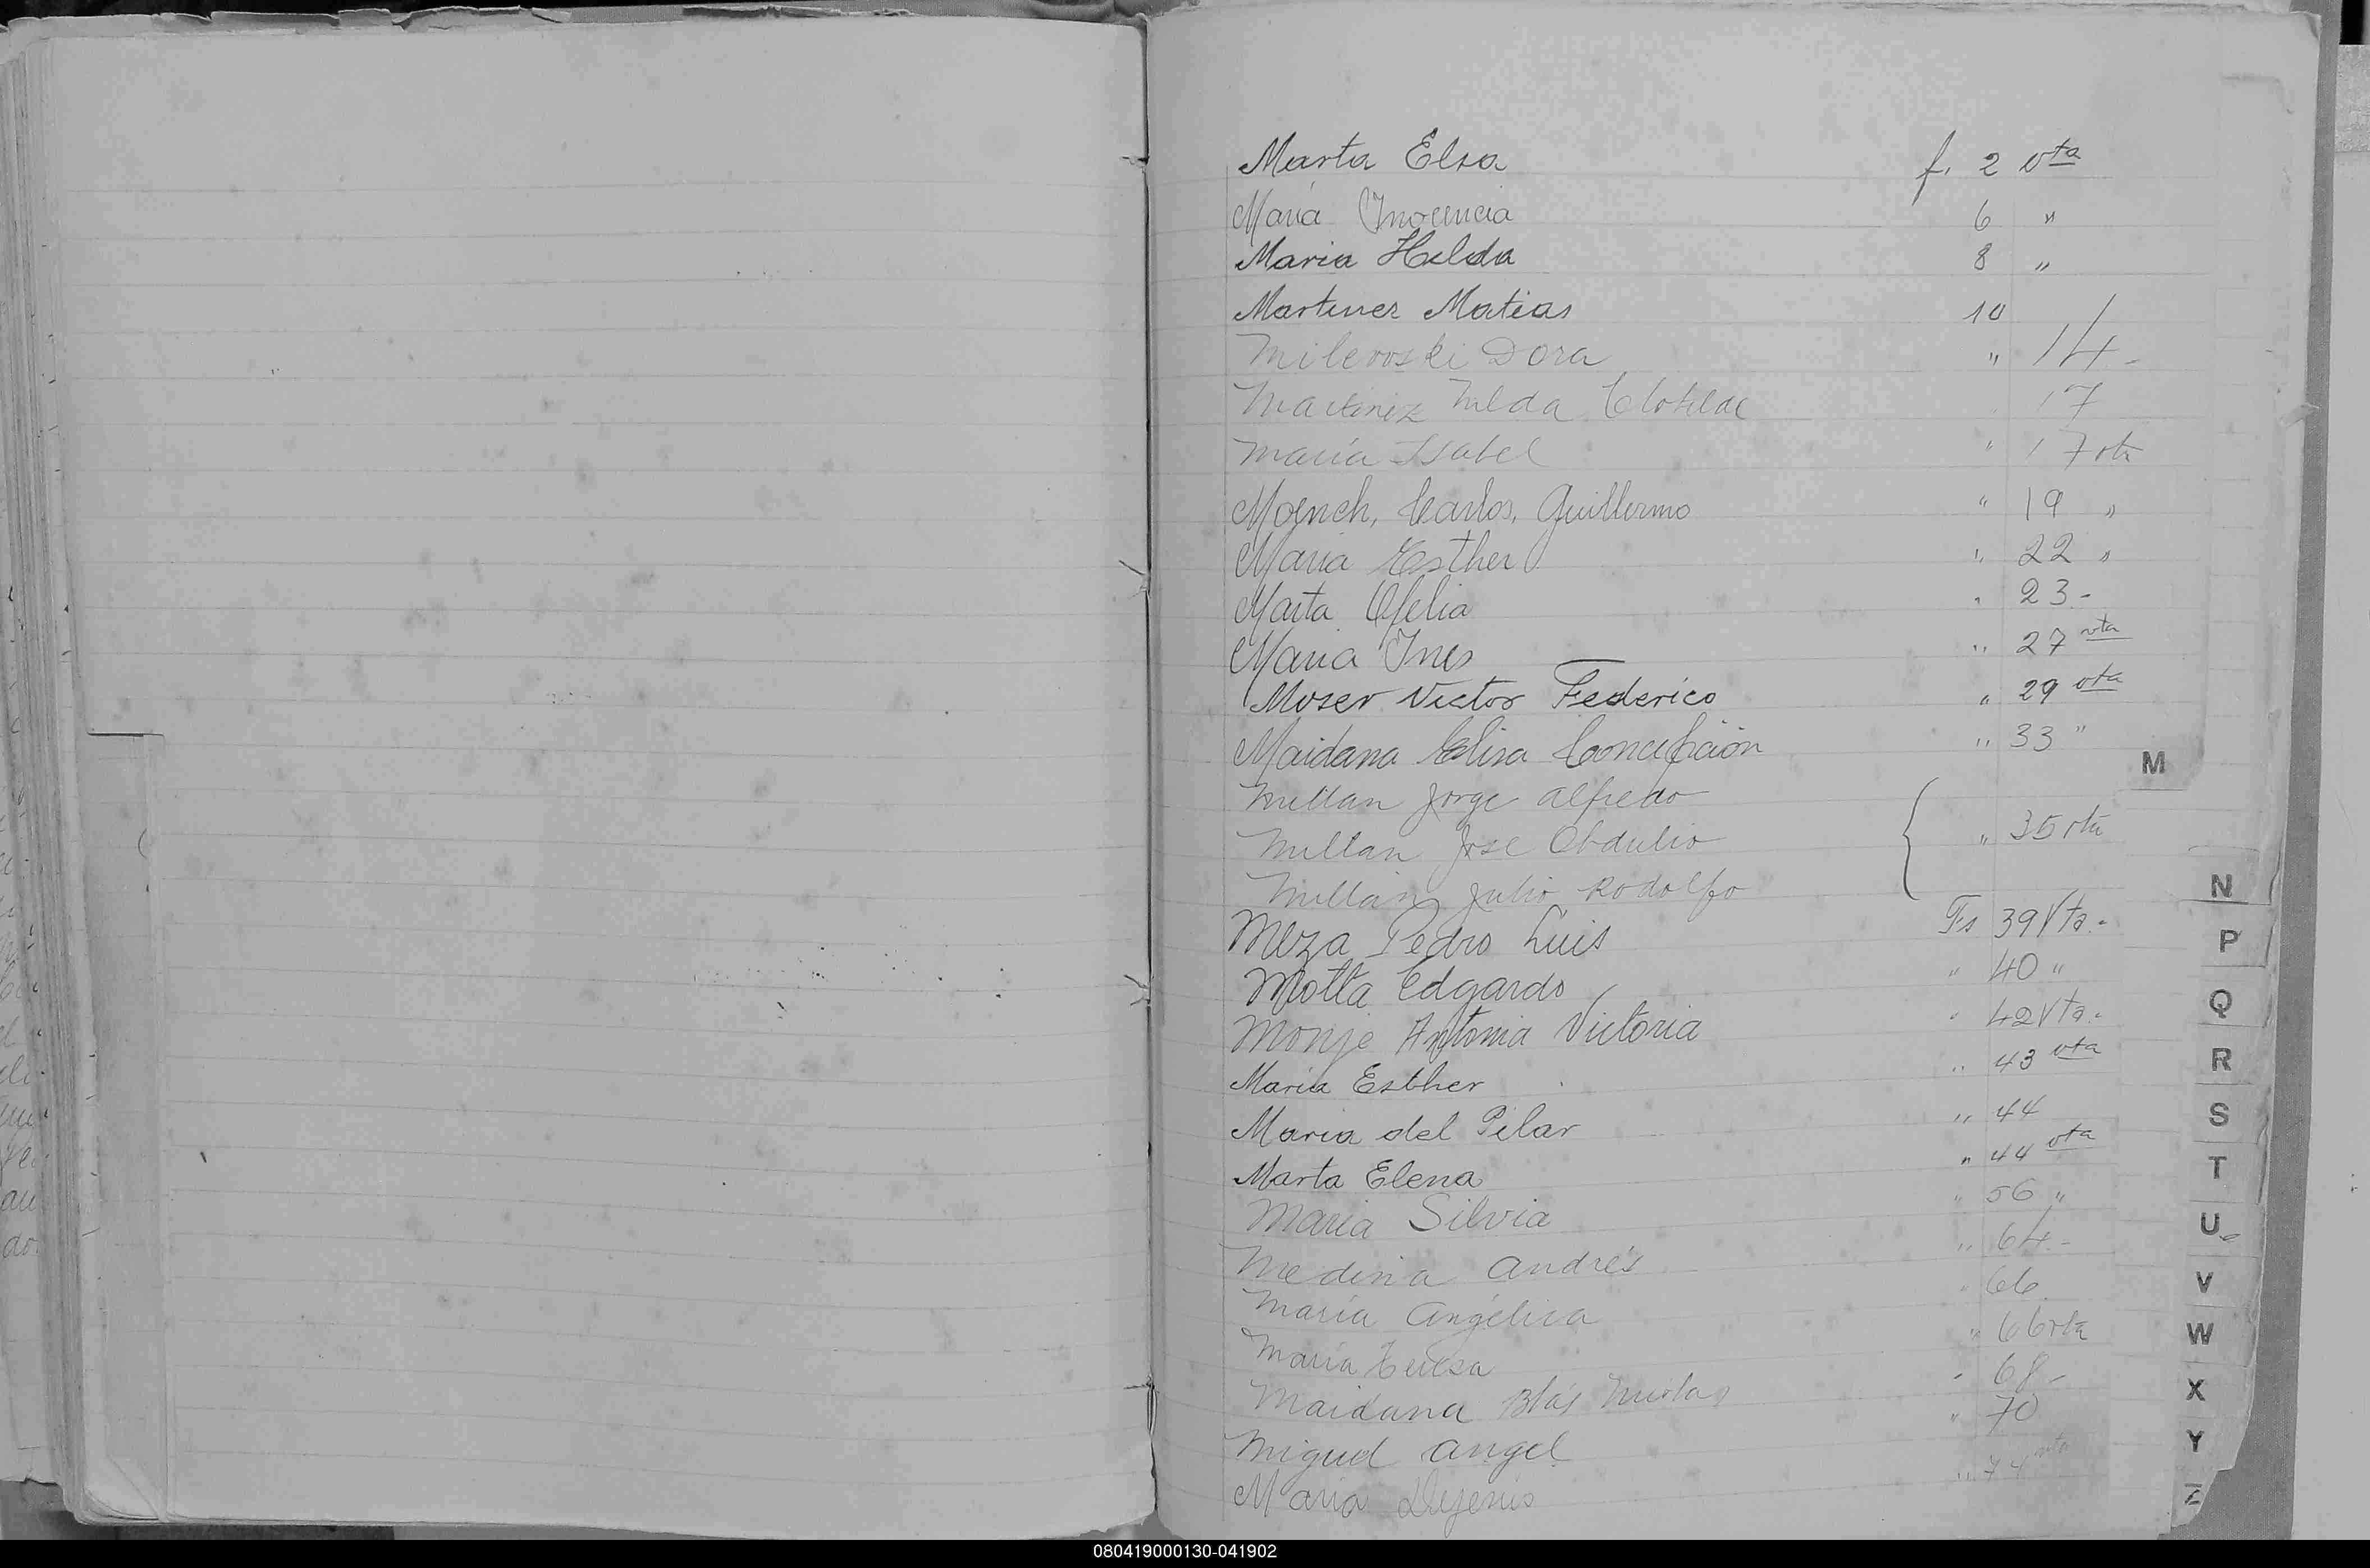 Marta Elsa f. 2 vta
María Inocencia 6 "
Maria Hilda 8 "
Martinez Matias 10
Milevoski Dora " 14 -
Martinez Nilda Clotilde " 17
María Isabel " 17 vta
Moench, Carlos, Guillermo " 19 "
María Esther " 22 "
Marta Ofelia " 23.-
María Ines " 27 vta
Moser Victor Federico " 29 vta
Maidana Elisa Concepción " 33 "
M
Millan Jorge Alfredo
Millan Jose Obdulio { " 35 vta
Millán Julio Rodolfo
N
Meza Pedro Luis Fs 39 Vta.-
P
Motta Edgardo " 40 "
Q
Monje Antonia Victoria " 42 Vta.-
Maria Esther " 43 vta
R
Maria del Pilar " 44
S
Marta Elena " 44 vta
T
Maria Silvia " 56 "
U
Medina Andrés " 64.-
V
María Angélica " 66
María Teresa " 66 vta
W
Maidana Blás Nicolas - 68 -
X
Miguel Angel " 70
Y
María " 74 vta
Z
080419000130-041902